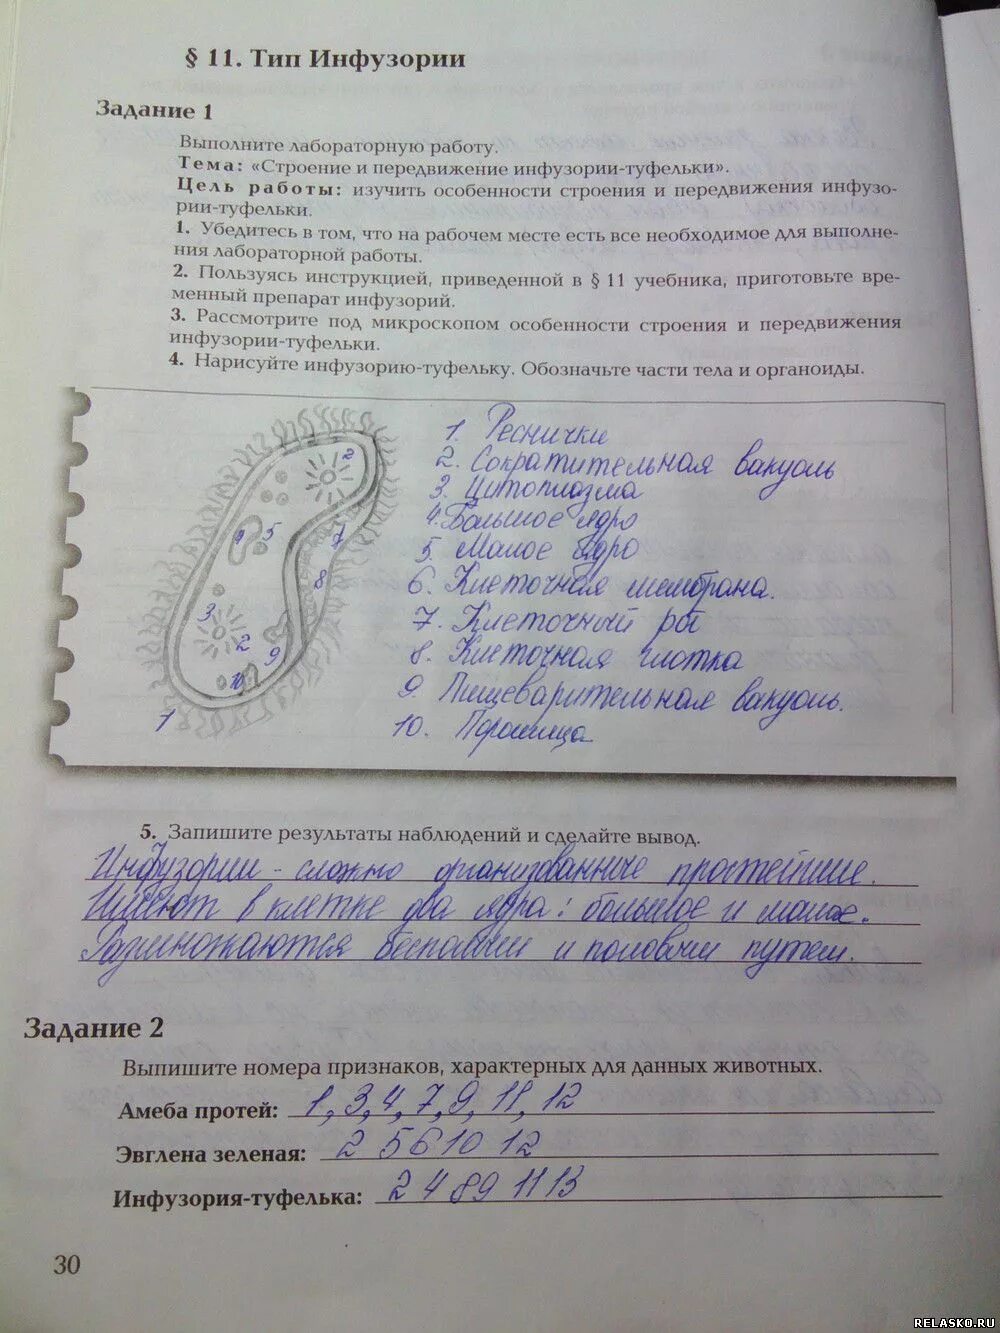 § 11. Тип Инфузории
Задание 1
Выполните лабораторную работу.
Тема: «Строение и передвижение инфузории-туфельки».
Цель работы: изучить особенности строения и передвижения инфузо-
рии-туфельки.
1. Убедитесь в том, что на рабочем месте есть все необходимое для выполне-
ния лабораторной работы.
2. Пользуясь инструкцией, приведенной в § 11 учебника, приготовьте вре-
менный препарат инфузорий.
3. Рассмотрите под микроскопом особенности строения и передвижения
инфузории-туфельки.
4. Нарисуйте инфузорию-туфельку. Обозначьте части тела и органоиды.
1. Реснички
2. Сократительная вакуоль
3. Цитоплазма
4. Большое ядро
5. Малое ядро
6. Клеточная мембрана.
7. Клеточный рот
8. Клеточная глотка
9. Пищеварительная вакуоль.
10. Порошица
2
4 5 7
8
3
2
9
10
1
5. Запишите результаты наблюдений и сделайте вывод.
Инфузории - сложно организованные простейшие.
Имеют в клетке два ядра: большое и малое.
Размножаются бесполым и половым путем.
Задание 2
Выпишите номера признаков, характерных для данных животных.
Амеба протей: 1, 3, 4, 7, 9, 11, 12
Эвглена зеленая: 2 5 6 10 12
Инфузория-туфелька: 2 4 8 9 11 13
30
RELASKO.RU